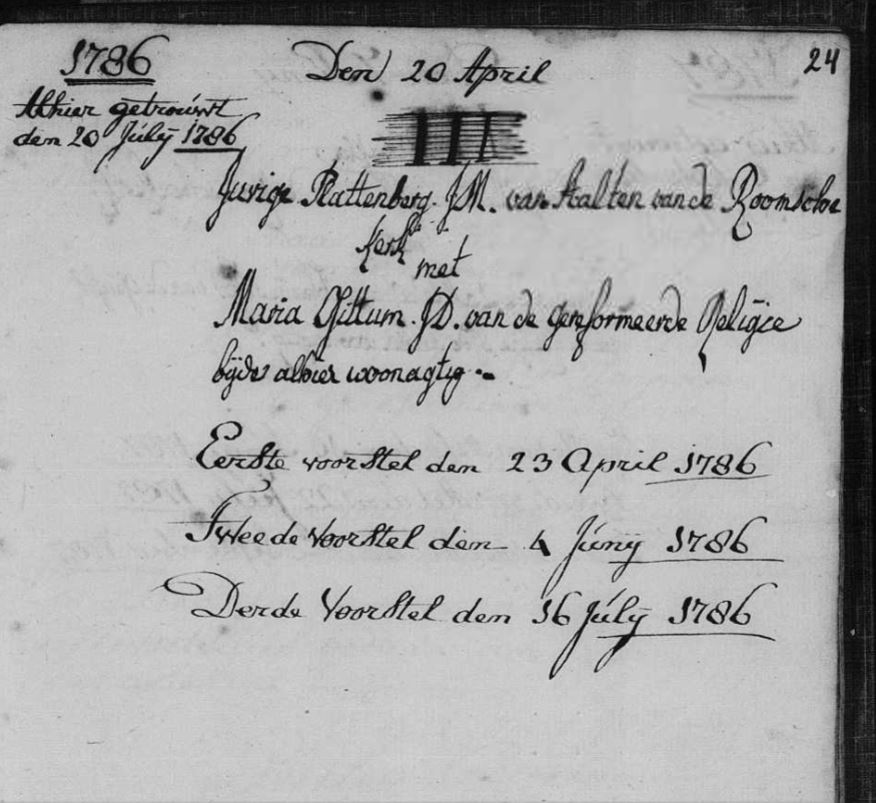 24
1786
Den 20 April
Alhier getrouwt
den 20 Julÿ 1786
III
Jurige Plattenberg. J.M. van Aalten van de Roomsche
Kerk
met
Maria Gittum. J.D. van de gereformeerde Religie
bÿde alhier woonagtig.
Eerste voorstel den 23 April 1786
Tweede Voorstel den 4 Junÿ 1786
Derde Voorstel den 16 Julÿ 1786